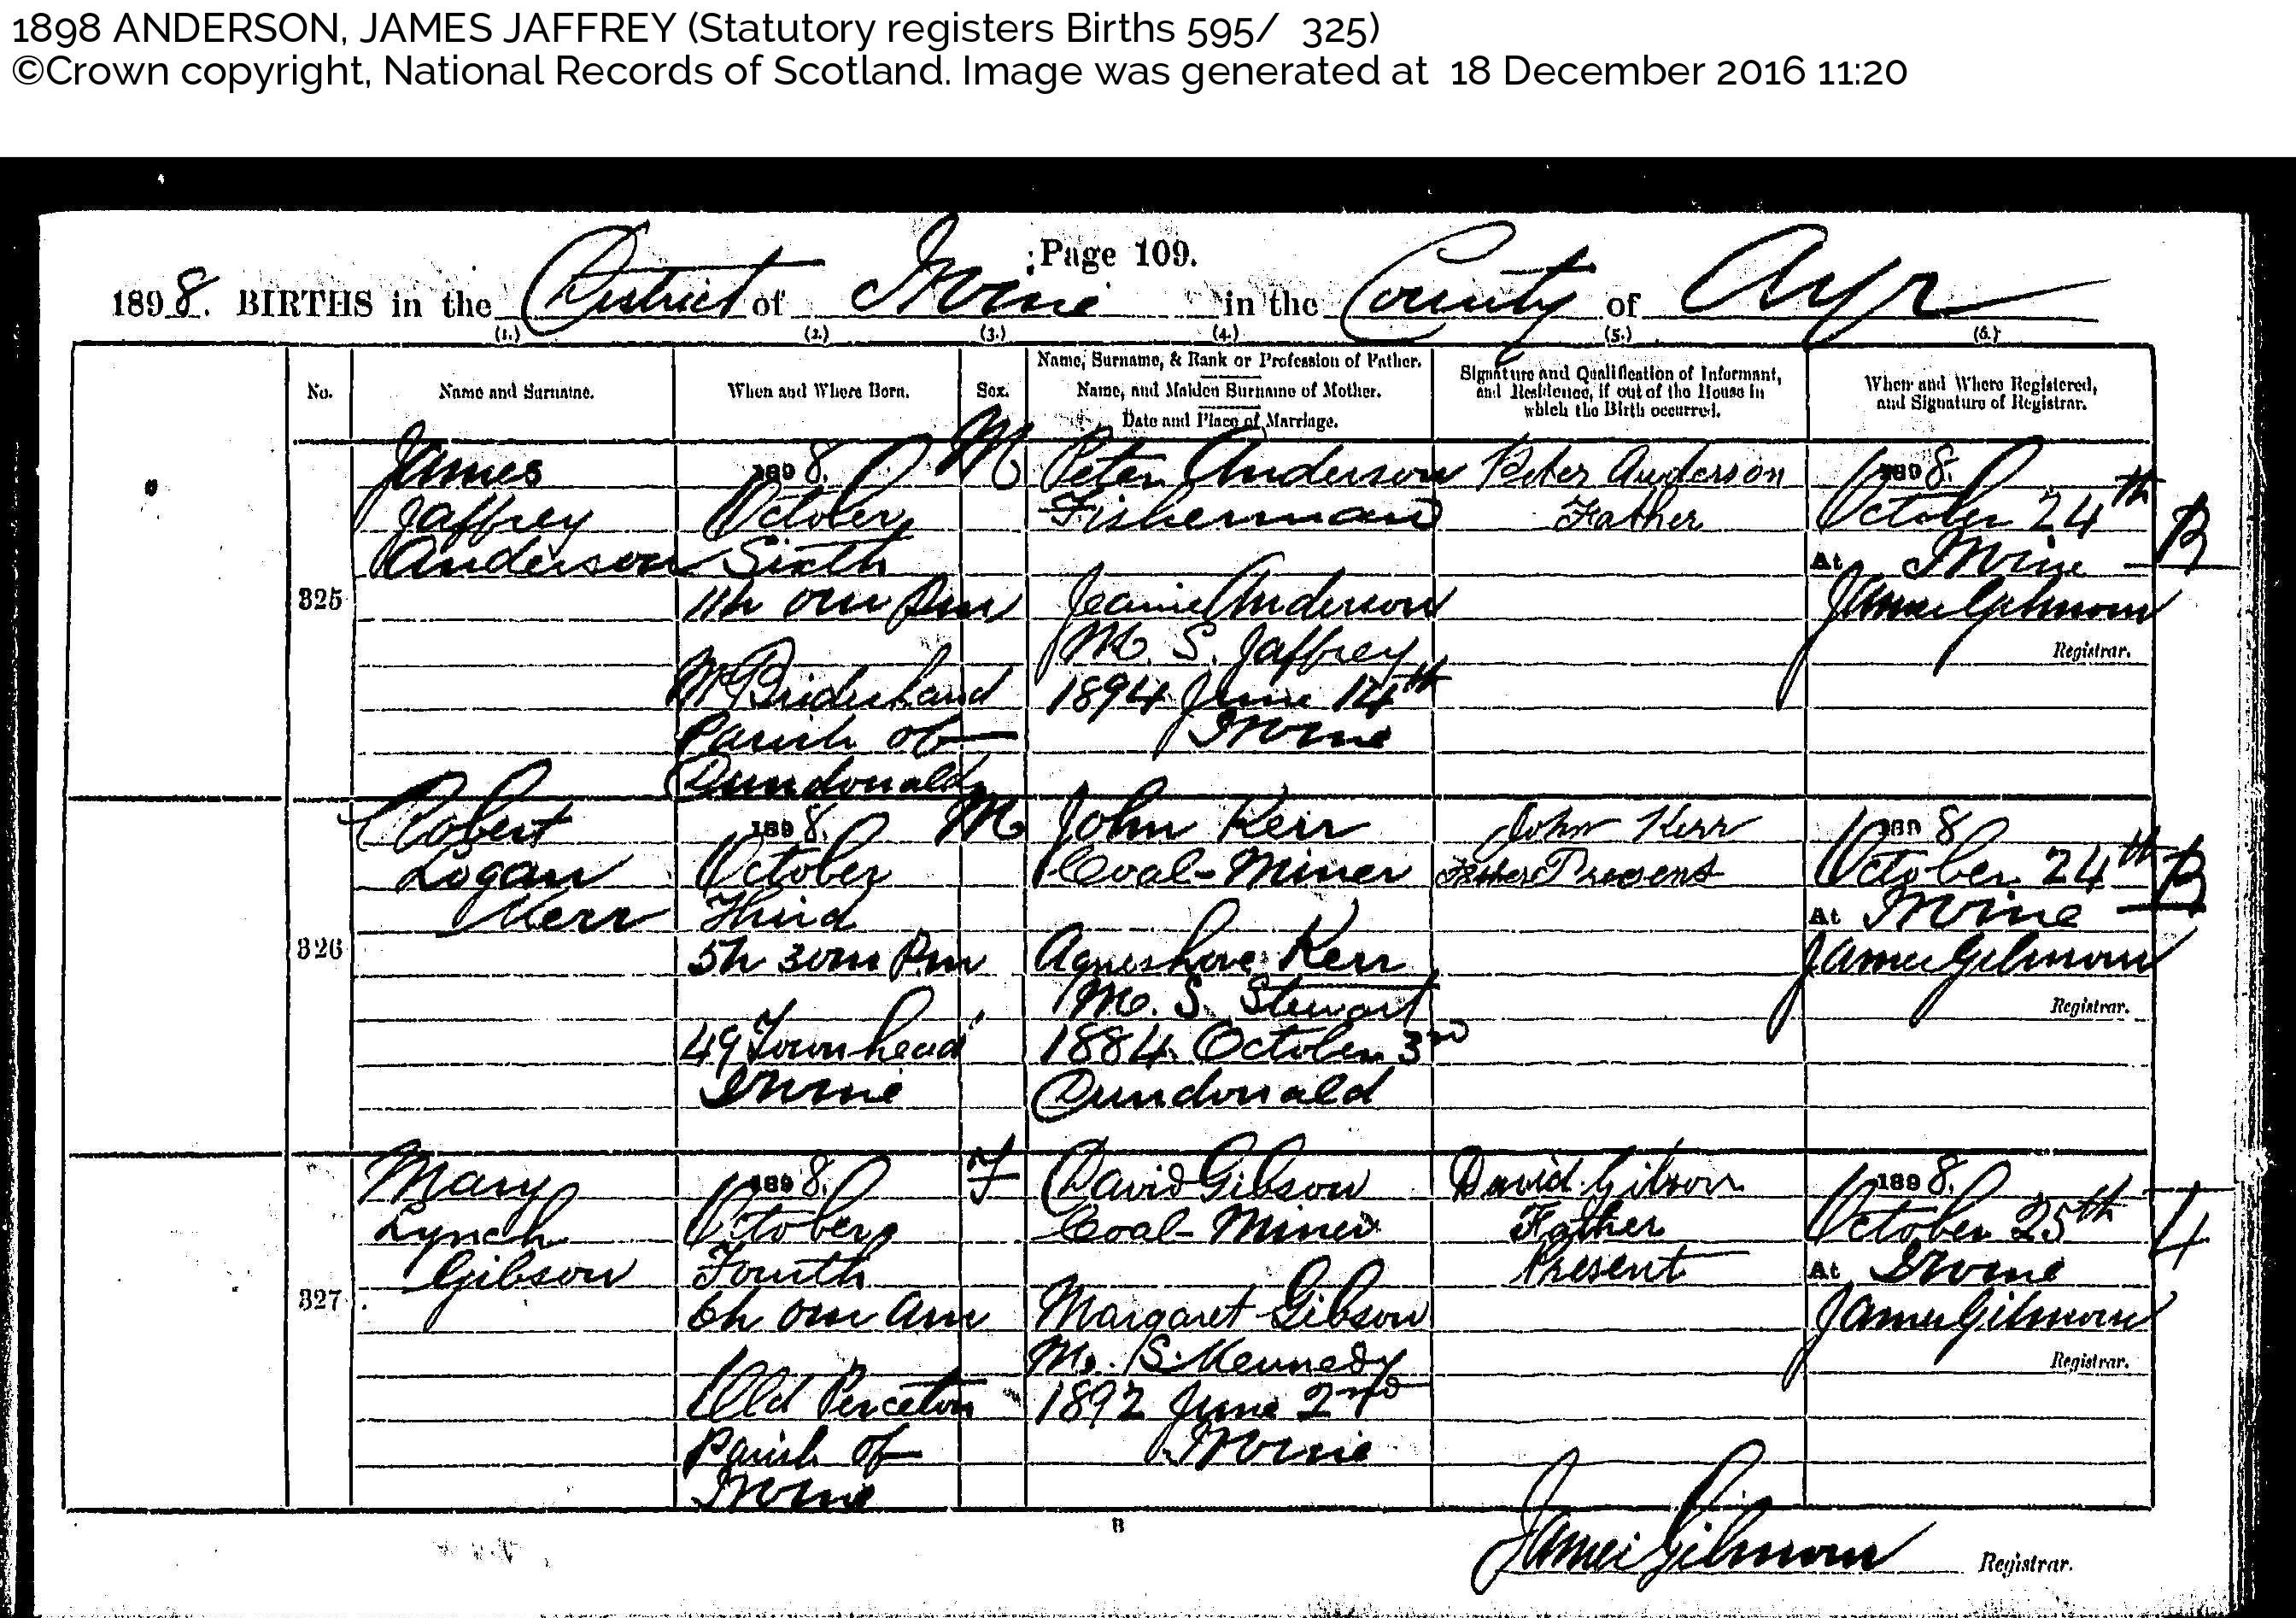 1898 ANDERSON, JAMES JAFFREY (Statutory registers Births 595/ 325)
©Crown copyright, National Records of Scotland. Image was generated at 18 December 2016 11:20
Page 109.
1898. BIRTHS in the District of Irvine in the County of Ayr
(1.) (2.) (3.) (4.) (5.) (6.)
No.
Name and Surname.
When and Where Born.
Sex.
Name, Surname, & Rank or Profession of Father.
Name, and Maiden Surname of Mother.
Date and Place of Marriage.
Signature and Qualification of Informant,
and Residence, if out of the House in
which the Birth occurred.
When and Where Registered,
and Signature of Registrar.
325
James
Jaffrey
Anderson
1898.
October
Sixth
11h 0m PM
Parish of
Dundonald
M
Peter Anderson
Fisherman
Jeanie Anderson
M. S. Jaffrey
1894 June 14th
Irvine
Peter Anderson
Father
1898.
October 24th
At Irvine
James Gilmour
Registrar.
326
Robert
Logan
Kerr
1898.
October
Third
5h 30m PM
49 Townhead
Irvine
M
John Kerr
Coal-Miner
Kerr
M. S. Stewart
1884 October 3rd
Dundonald
John Kerr
Father Present
1898
October 24th
At Irvine
James Gilmour
Registrar.
327
Mary
Lynch
Gibson
1898.
October
Fourth
6h 0m AM
Old Perceton
Parish of
Irvine
F
David Gibson
Coal-Miner
Margaret Gibson
M. S. Kennedy
1892 June 2nd
Irvine
David Gibson
Father
Present
1898.
October 25th
At Irvine
James Gilmour
Registrar.
B
James Gilmour Registrar.